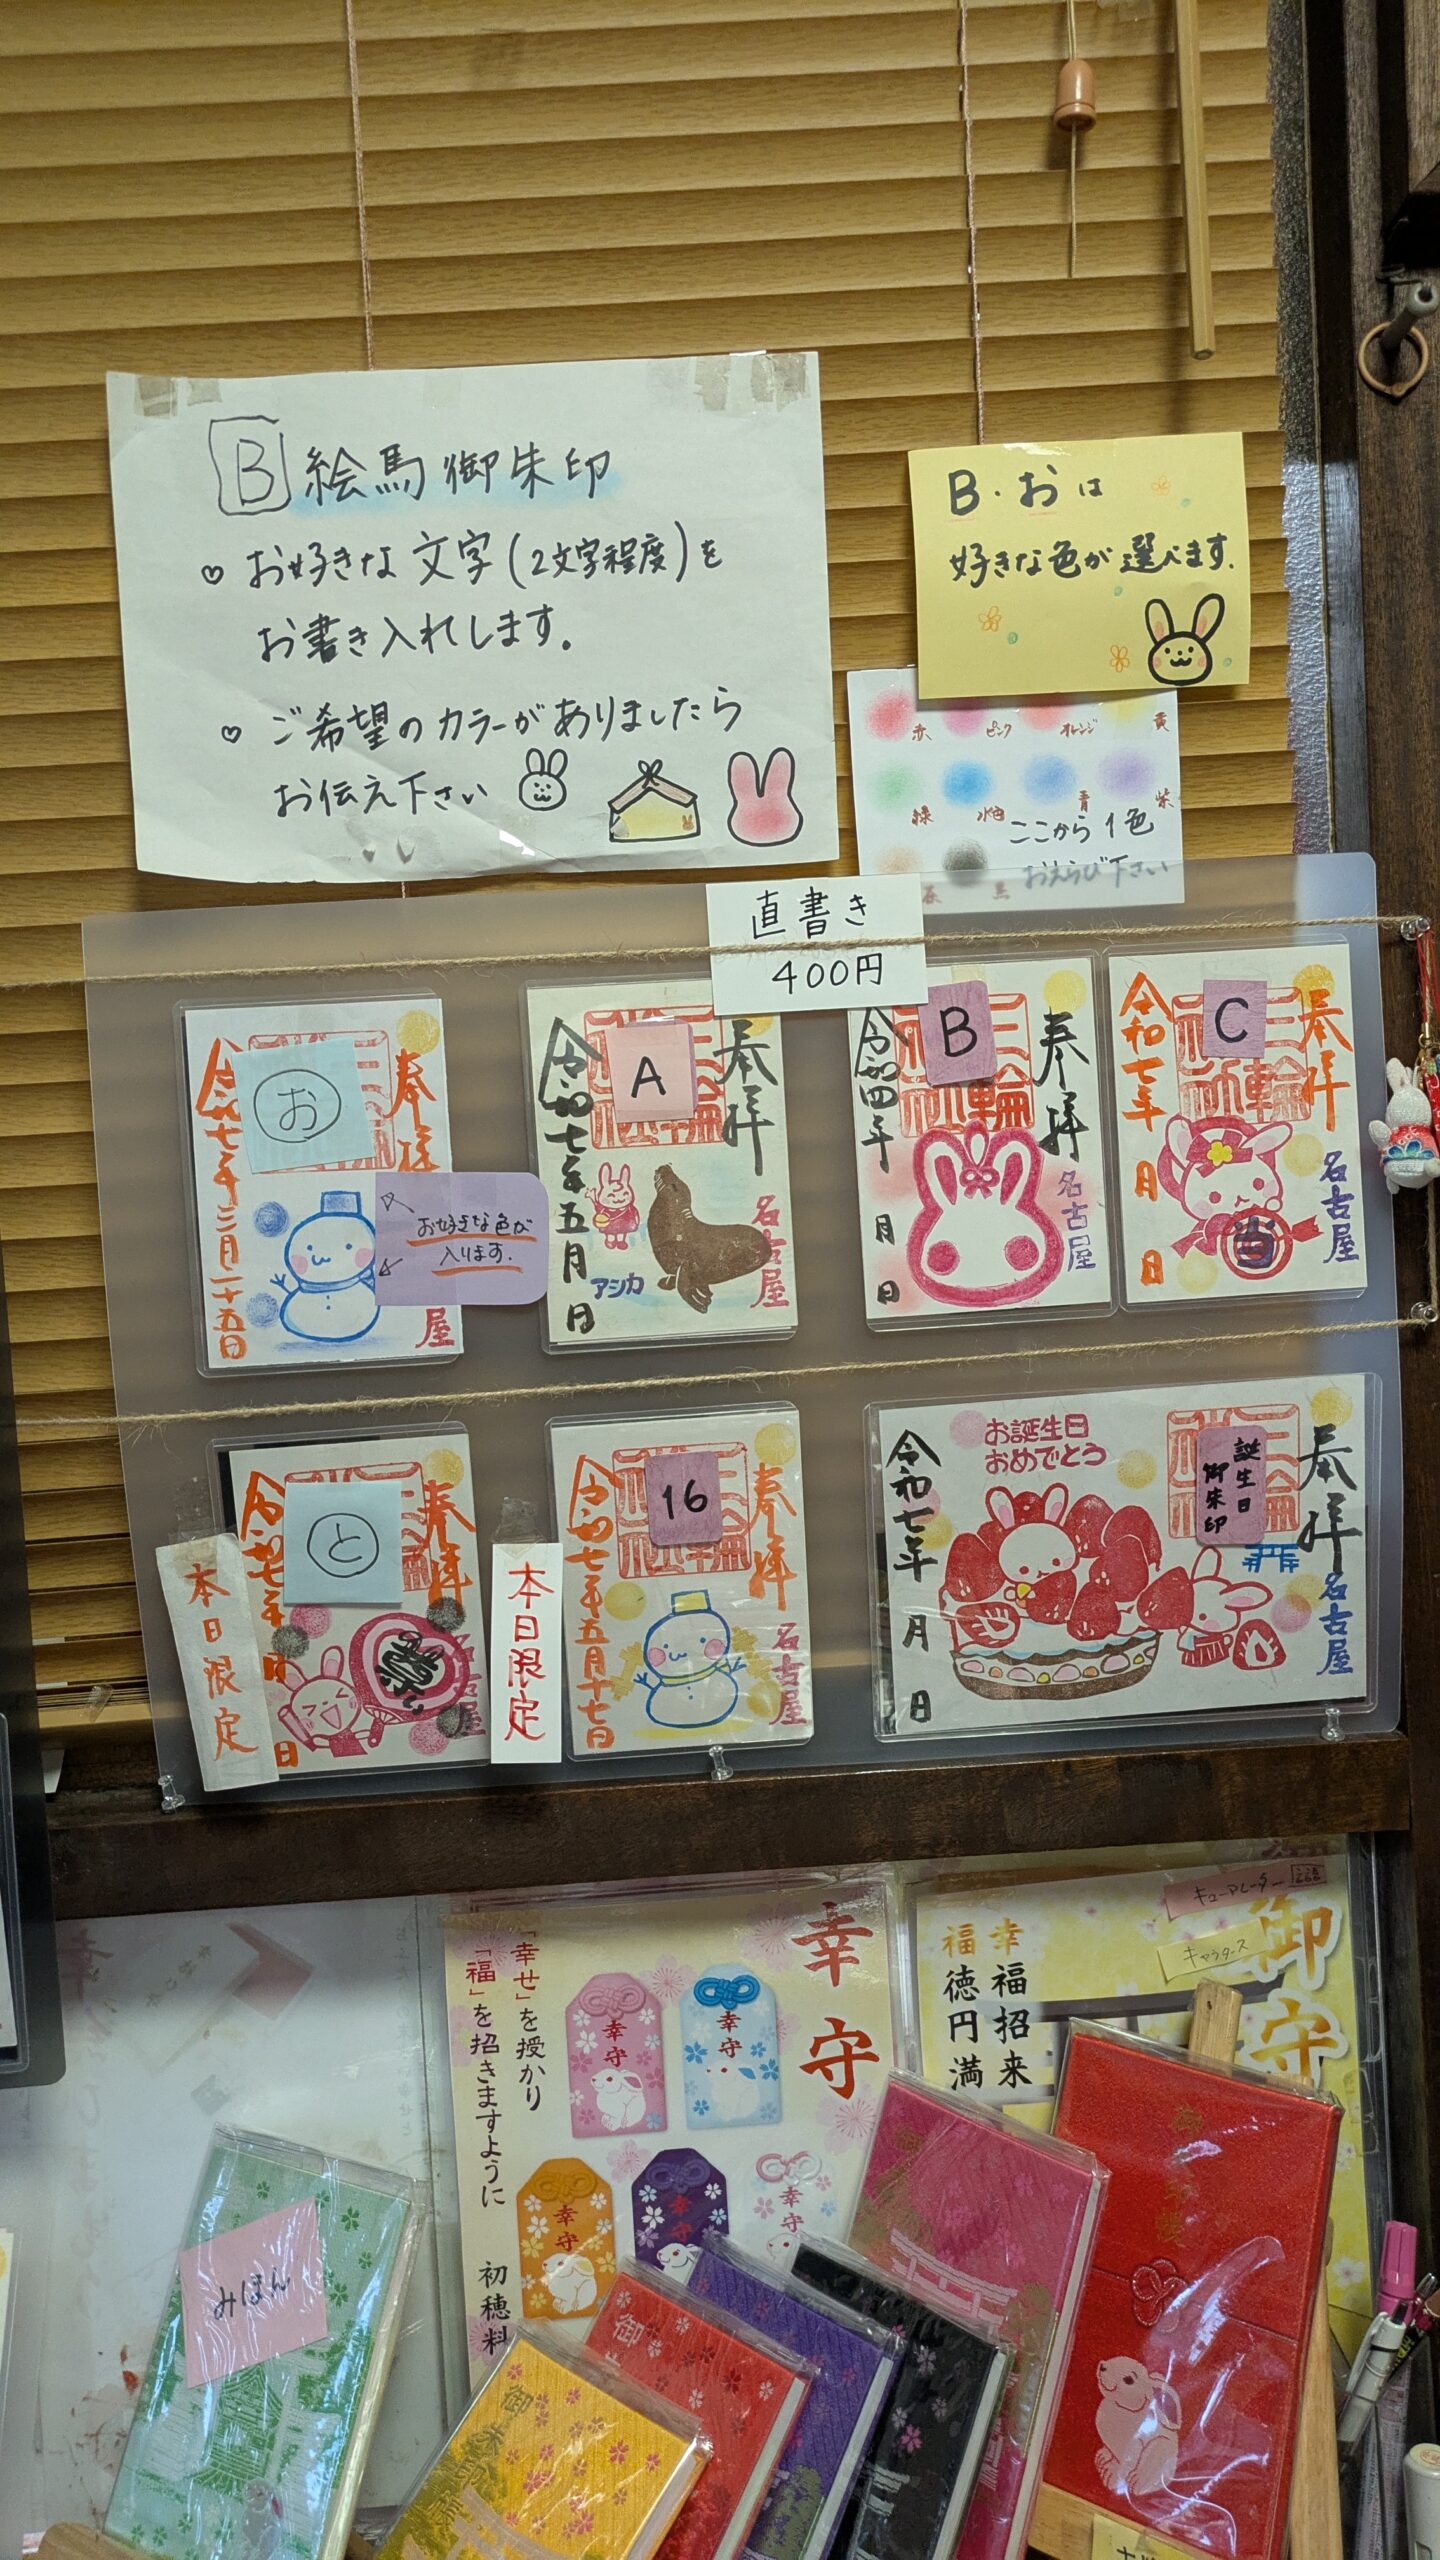 B 絵馬御朱印
♡ お好きな文字(2文字程度)を
お書き入れします。
♡ ご希望のカラーがありましたら
お伝え下さい
B・おは
好きな色が選べます.
赤 ピンク オレンジ 黄
緑 水色 青 紫
ここから1色
灰 黒 おえらび下さい
直書き
400円
お
奉拝
令和七年三月二十五日
お好きな色が
入ります.
屋
A
奉拝
令和七年五月 日
アシカ
名古屋
B
三輪
奉拝
令和四年 月 日
名古屋
C
奉拝
令和七年 月 日
当
名古屋
本日限定
と
奉拝
令和七年
日
名古屋
本日限定
16
奉拝
令和七年五月十七日
名古屋
お誕生日
おめでとう
誕生日
御朱印
奉拝
令和七年 月 日
名古屋
幸守
「幸せ」を授かり
「福」を招きますように
初穂料
幸守
幸守
幸守
幸守
幸守
キューアレーター
キャラクターズ
御守
幸福招来
福徳円満
みほん
御朱印帳
御
御朱印帳